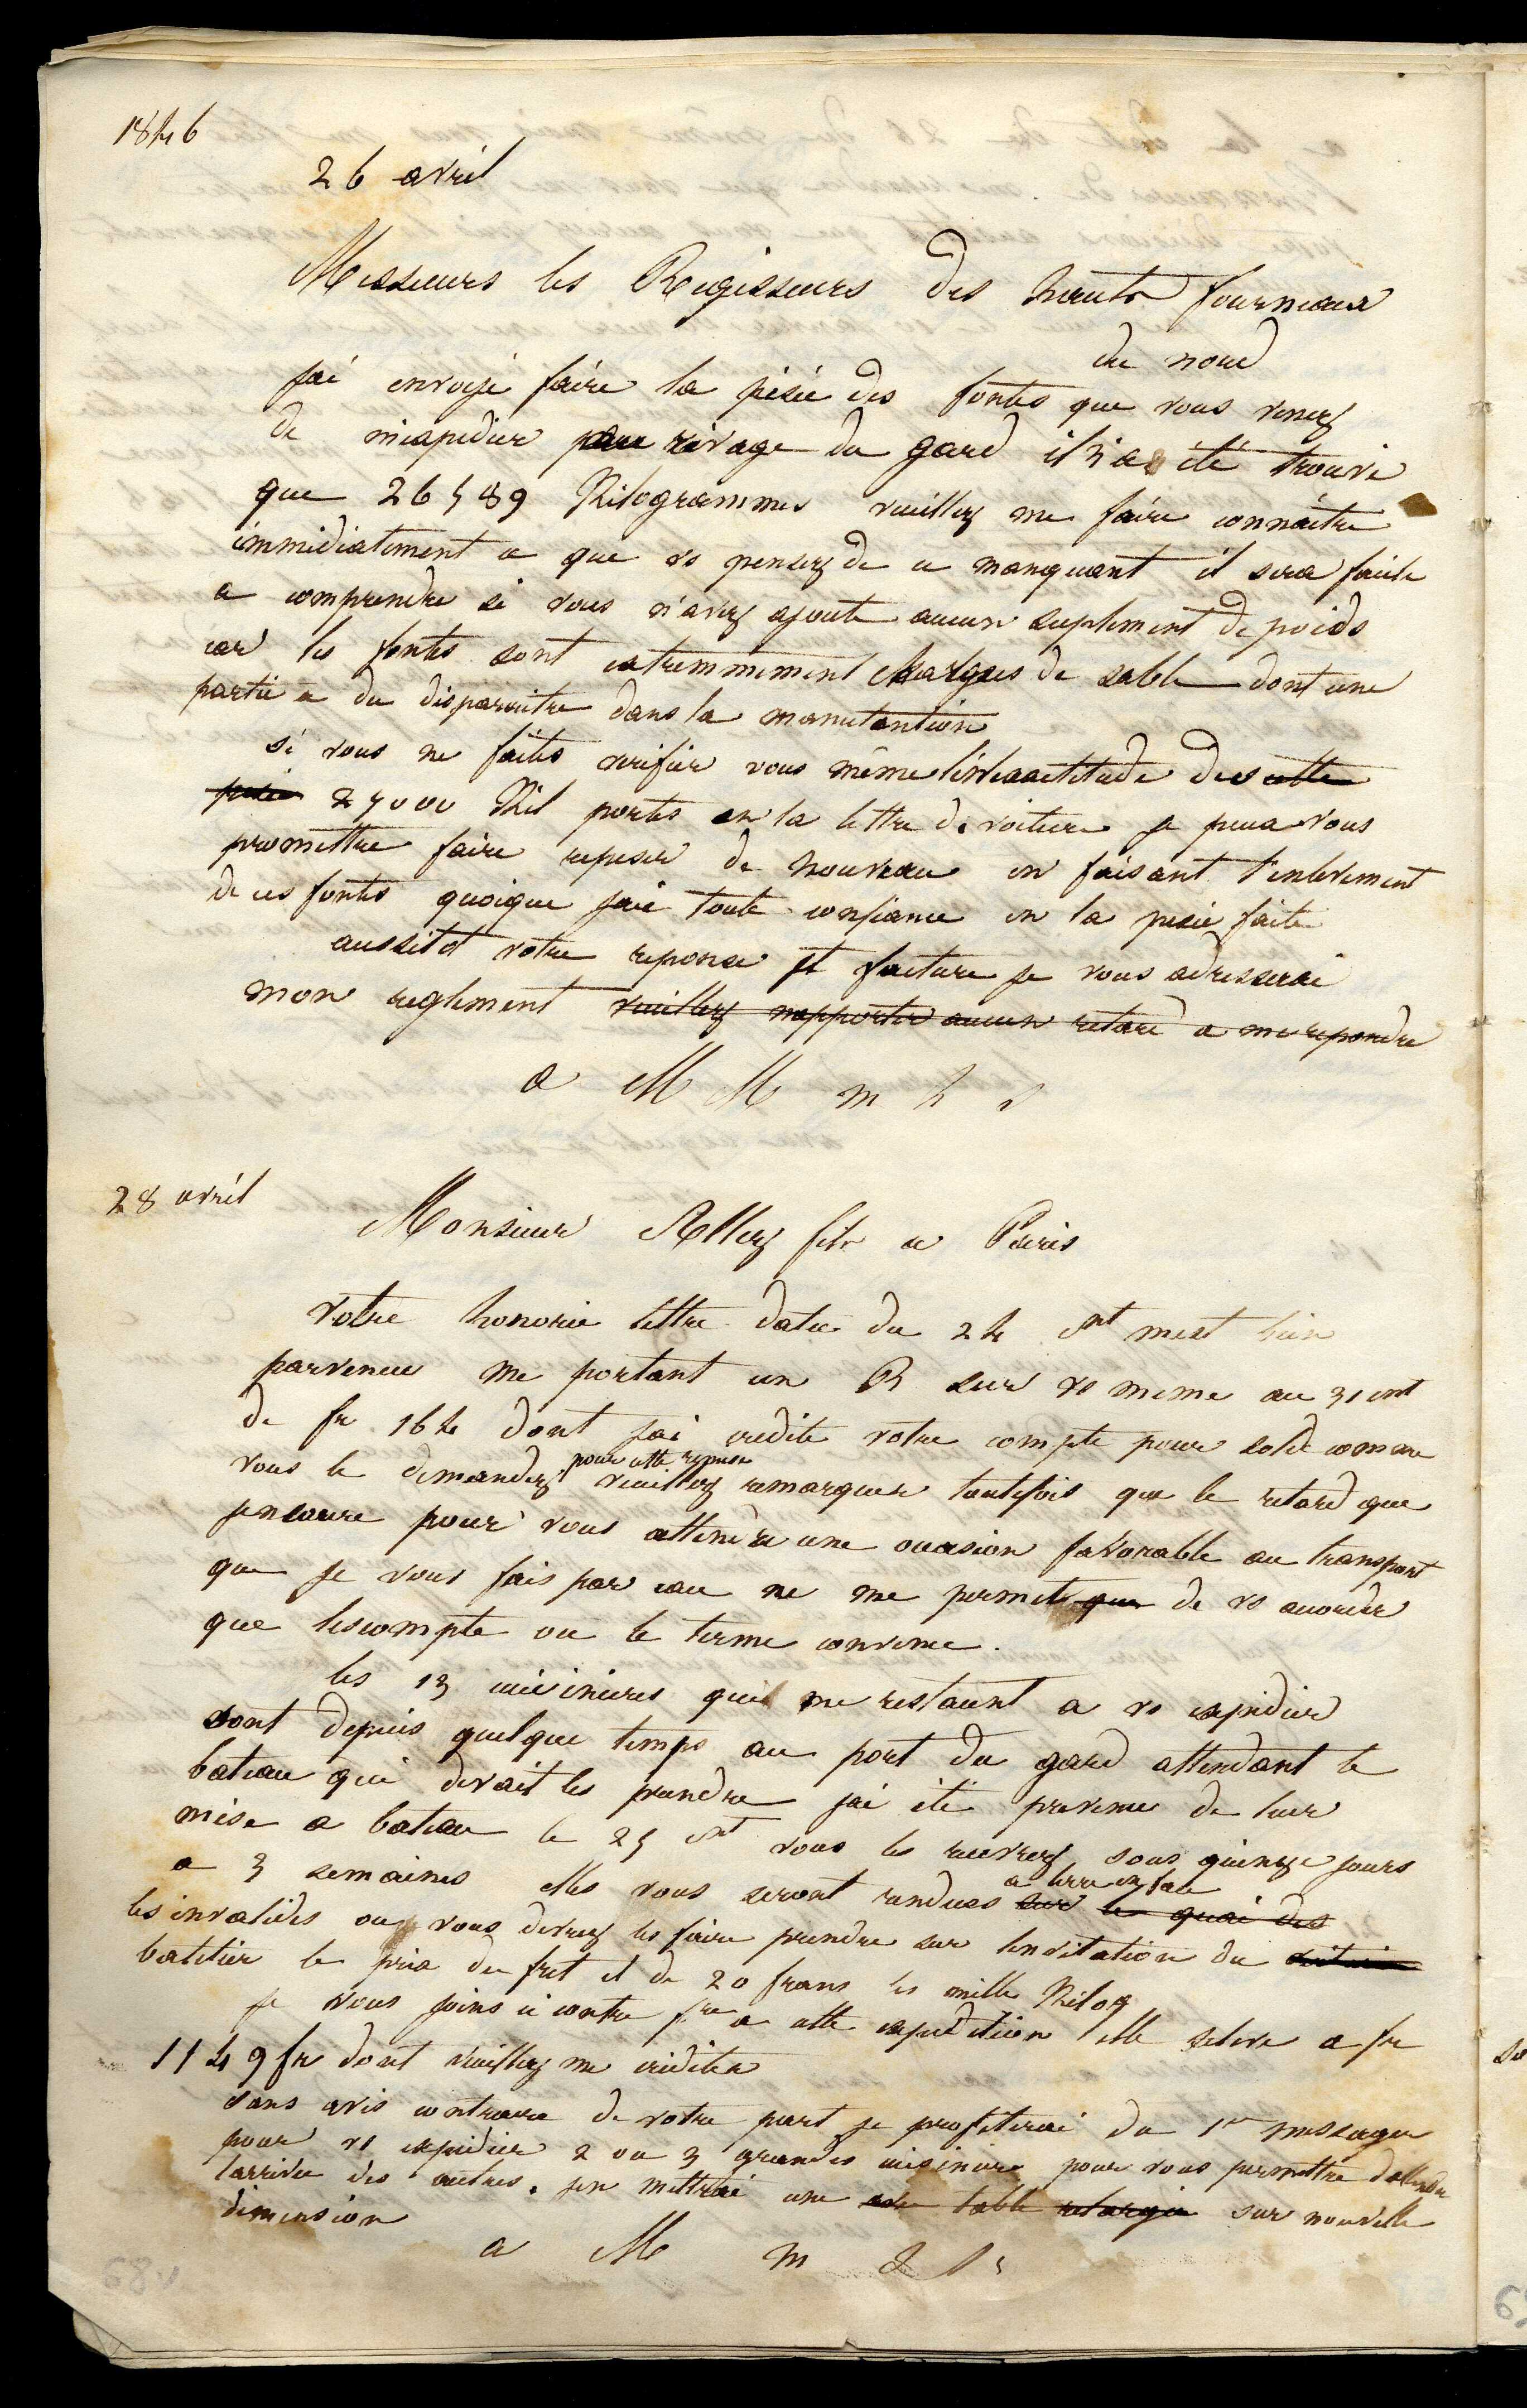 1846
26 avril
Messieurs les Regisseurs des hauts fourneaux
du nord
jai envoyé faire la pesée des fontes que vous venez
de m'expedier au rivage du gard il n'a été trouvé
que 26589 Kilogrammes veuillez me faire connaître
immediatement ce que vs pensez de ce manquant il sera facile
a comprendre si vous n'avez ajouté aucun suplement de poids
car les fontes sont extremmement chargees de sable dont une
partie a du disparaitre dans la manutantion
si vous ne faites verifier vous même l'inexactitude des cette
pesée 27000 Kil portés en la lettre de voiture je peux vous
promettre faire repeser de nouveau en faisant l'enlevement
de ces fontes quoique jaie toute confiance en la pesée faite
aussitot votre reponse et facture je vous adresserai
mon reglement veuillez n'apporter aucun retard a me repondre
a M M m h s
28 avril
Monsieur Allez fils a Paris
Votre honorée lettre datée du 24 ct m'est bien
parvenue me portant un B sur vs meme au 31 ct
de fr 164 dont jai credité votre compte pour solde comme
vous le demandez pour cette reprise veuillez remarquer toutefois que le retard que
jencoure pour vous attendre une occasion favorable au transport
que je vous fais par eau ne me permet que de vs accorder
que lescompte ou le terme convenu.
les 13 cuisinieres qui me restaient a vs expedier
sont depuis quelque temps au port du gard attendant le
bateau qui devait les prendre jai été prevenu de leur
mise a bateau le 25 ct vous les recevrez sous quinze jours
a 3 semaines elles vous seront rendues sur le quai des a terre en face
les invalides ou vous devrez les faire prendre sur linvitation du
batelier le prix du fret est de 20 francs les mille Kilog
je vous joins ci contre fre a cette expedition elle seleve a fr
1149 fr dont veuillez me crediter
sans avis contraire de votre part je profiterai du 1er messager
pour vs expedier 2 ou 3 grandes cuisinieres pour vous permettre dattendre
larrivée des autres. jen mettrai une a table elargie sur nouvelle
dimension
a M m & s
68 v